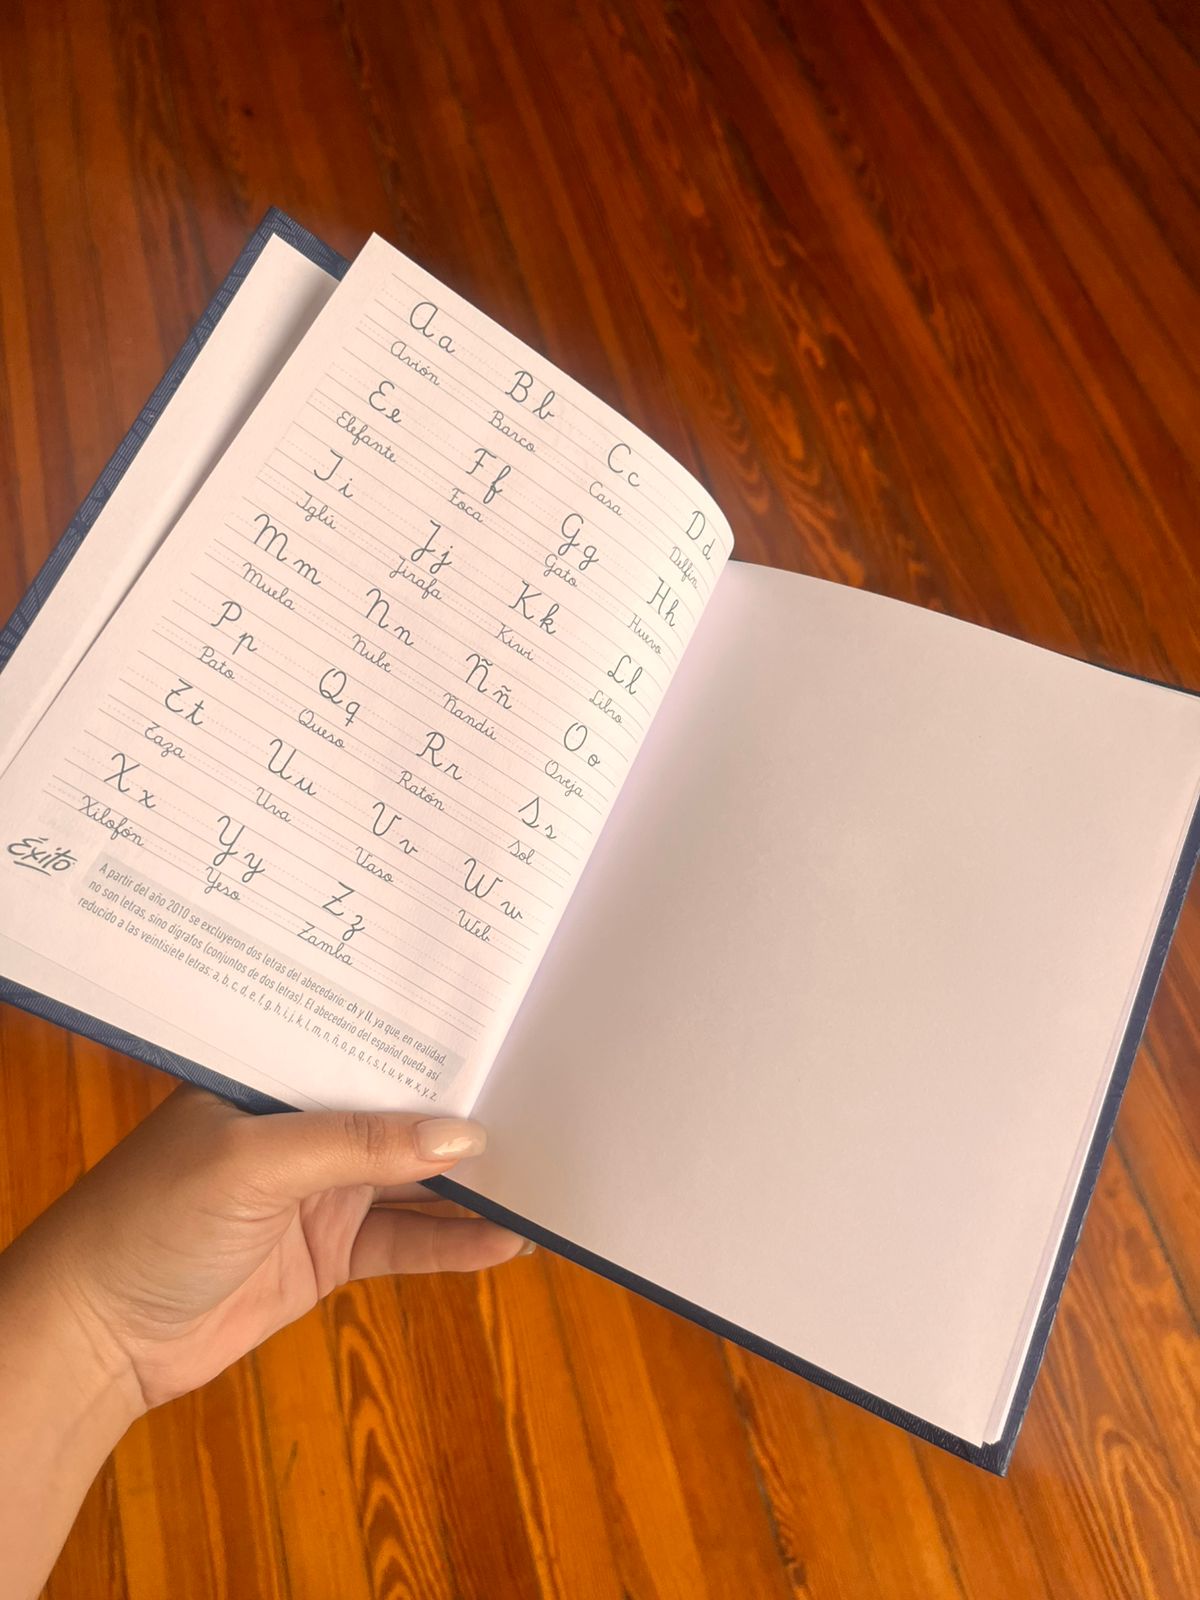 Aa Bb Cc Dd
Avión Barco Casa Delfín
Ee Ff Gg Hh
Elefante Foca Gato Huevo
Ii Jj Kk Ll
Iglú Jirafa Kiwi Libro
Mm Nn Ññ Oo
Muela Nube Ñandú Oveja
Pp Qq Rr Ss
Pato Queso Ratón Sol
Tt Uu Vv Ww
Taza Uva Vaso Web
Xx Yy Zz
Xilofón Yeso Zamba
Éxito
A partir del año 2010 se excluyeron dos letras del abecedario: ch y ll, ya que, en realidad,
no son letras, sino dígrafos (conjuntos de dos letras). El abecedario del español queda así
reducido a las veintisiete letras: a, b, c, d, e, f, g, h, i, j, k, l, m, n, ñ, o, p, q, r, s, t, u, v, w, x, y, z.